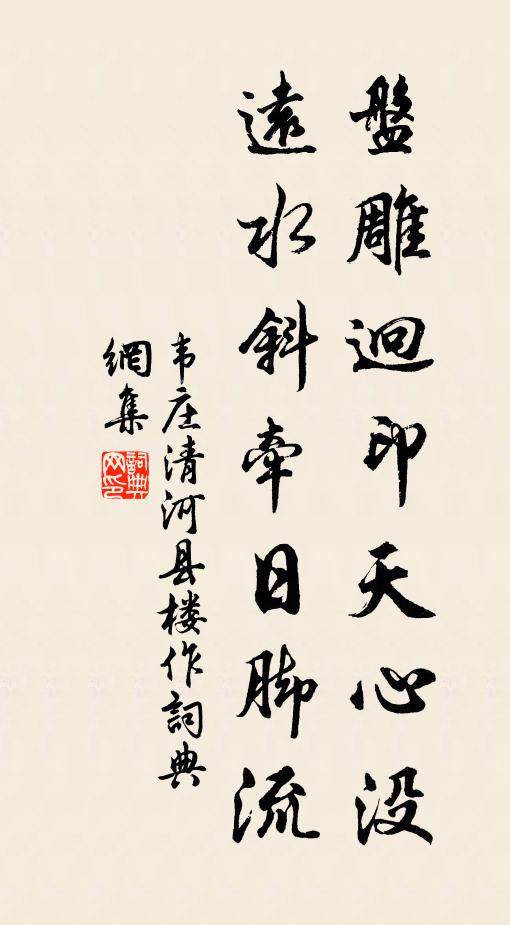 盤雕迥印天心没
遠水斜牽日脚流
韦庄清河县楼作詞典
網集
詞典
网印